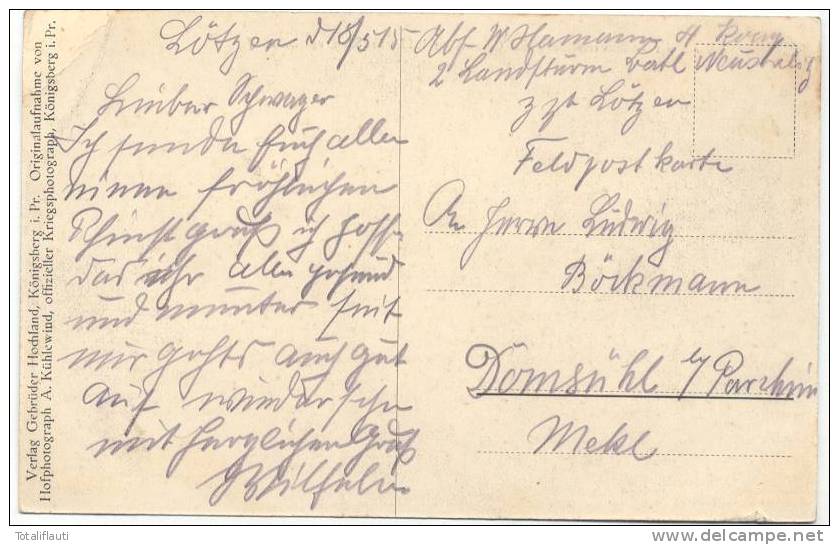 Verlag Gebrüder Hochland, Königsberg i. Pr. Originalaufnahme von
Hofphotograph A. Kühlewind, offizieller Kriegsphotograph, Königsberg i. Pr.
Lötzen d 18/5 15
Lieber Schwager
Ich sende Euch allen
einen fröhlichen
Phinst gruß ich hoffe
das ihr alle gesund
und munter seit
mir gehts auch gut
auf wiedersehn
mit herzlichen Gruß
Wilhelm
Abs W Hamann 4 Komp
2 Landsturm Batl Neustrelitz
z zt Lötzen
Feldpostkarte
An Herrn Ludwig
Böckmann
Domsühl b/ Parchim
Mekl
Totaliflauti
delcampe.net